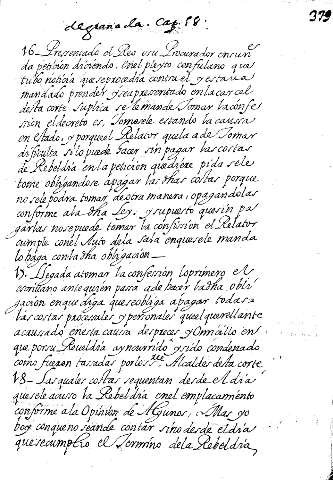 de granada. Cap. 18.
379
16 Presentado el Reo o su Procurador en su nᵉ
da peticion diciendo, en el pleyto con fulano que
tubo noticia que se procedia contra el y estava
mandado prender, y se a presentado en la carcel
desta corte Suplica se le mande tomar la confe
sion el decreto es, Tomesele estando la caussa
en estado, y porque el Relator que la a de tomar
dificulta si lo puede hacer sin pagar las costas
de Rebeldia en la peticion que diere pida se le
tome obligandose a pagar las dhas costas porque
no se le podra tomar de otra manera, o pagandolas
conforme a la dha Ley, y supuesto que sin pa
garlas no se puede tomar la confession el Relator
cumple con el Auto de la Sala en que se le manda
lo haga con la dha obligacion
17 Llegado a tomar la confession lo primero el
escrivano ante quien passa a de hacer la dha obli
gacion en que diga que se obliga a pagar todas
las costas procesales y personales que el querellante
a causado en esta causa despreces, y Omecillo en
que por su Reveldia ay incurrido y sido condenado
como fueren tasadas por los Sʳᵉˢ Alcaldes desta corte
18 Las quales costas se quentan desde el dia
que se le acuso la Rebeldia en el emplacamiento
conforme a la Opinion de Algunos, Mas yo
boy con que no se an de contar sino desde el dia
que se cumplio el Termino de la Rebeldia,